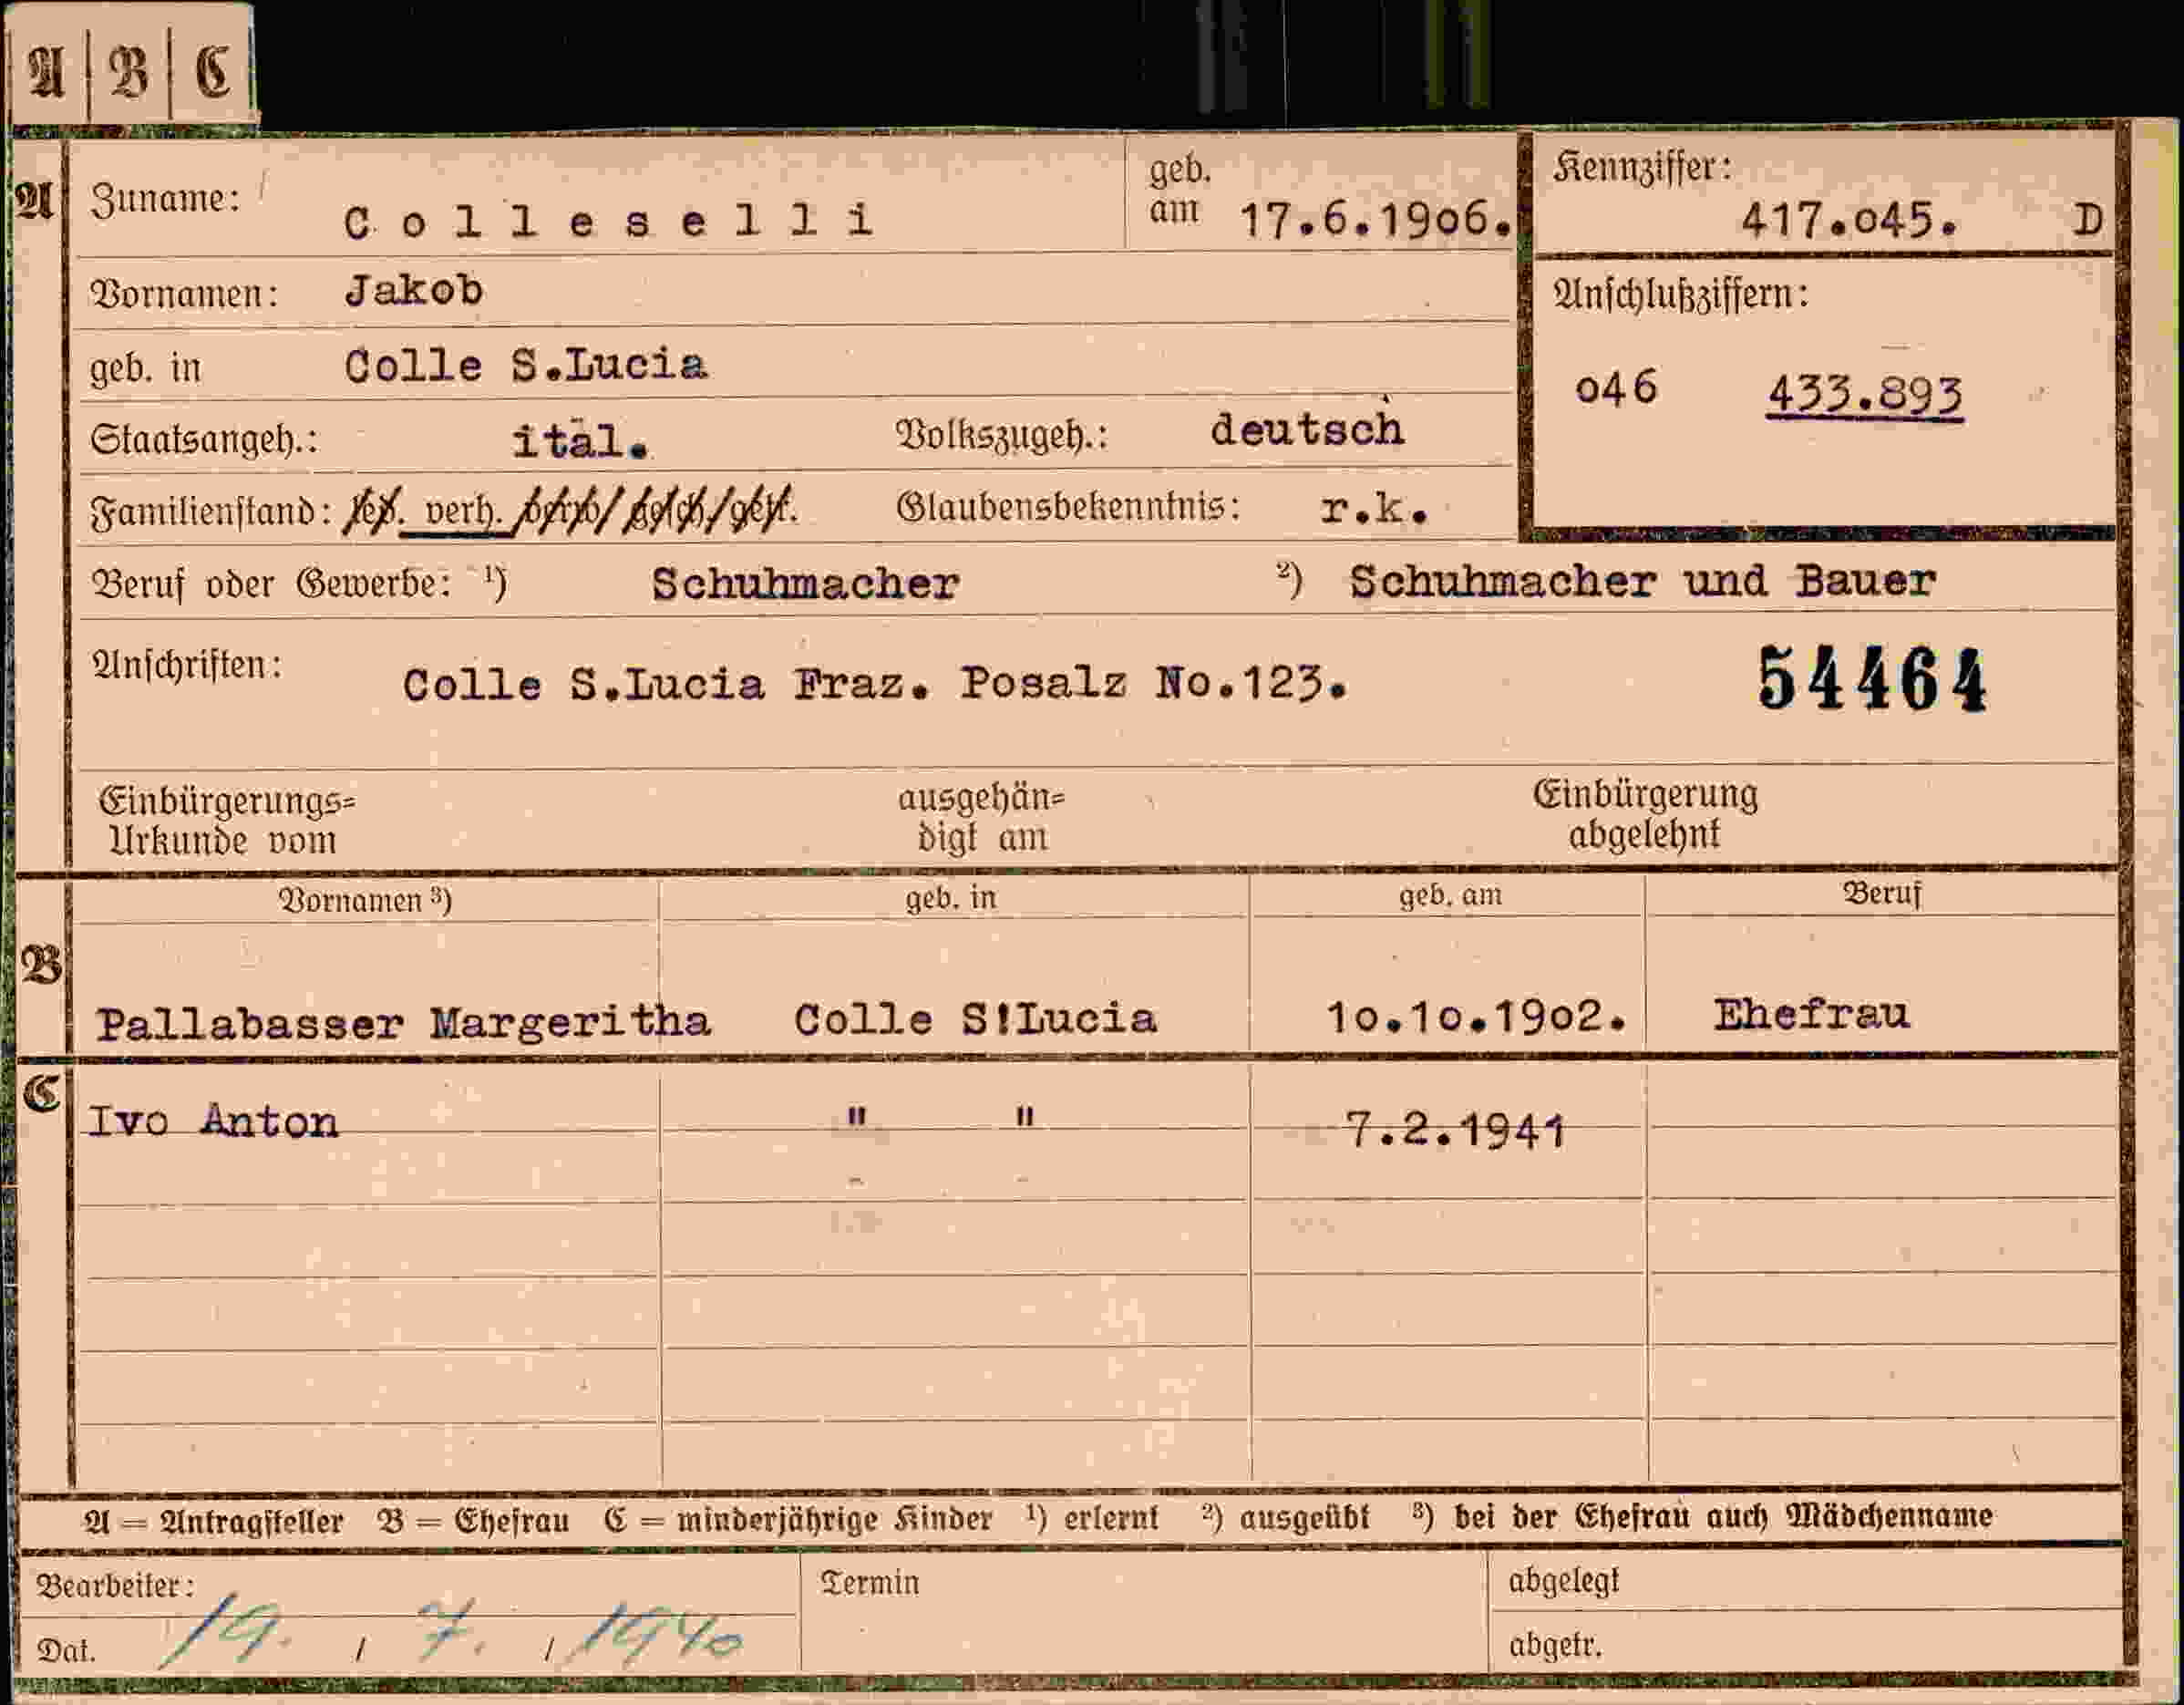 A | B | C
A Zuname: Colleselli geb. am 17.6.1906. Kennziffer: 417.045. D
Vornamen: Jakob
Anschlußziffern:
geb. in Colle S.Lucia
046 433.893
Staatsangeh.: ital. Volkszugeh.: deutsch
Familienstand: led. verh. verw./gesch./get. Glaubensbekenntnis: r.k.
Beruf oder Gewerbe: ¹) Schuhmacher ²) Schuhmacher und Bauer
Anschriften: Colle S.Lucia Fraz. Posalz No.123. 54464
Einbürgerungs= ausgehän= Einbürgerung
Urkunde vom digt am abgelehnt
Vornamen ³) geb. in geb. am Beruf
B
Pallabasser Margeritha Colle S!Lucia 10.10.1902. Ehefrau
C
Ivo Anton " " 7.2.1941
A = Antragsteller B = Ehefrau C = minderjährige Kinder ¹) erlernt ²) ausgeübt ³) bei der Ehefrau auch Mädchenname
Bearbeiter: Termin abgelegt
Dat. 19. / 7. / 1940 abgetr.